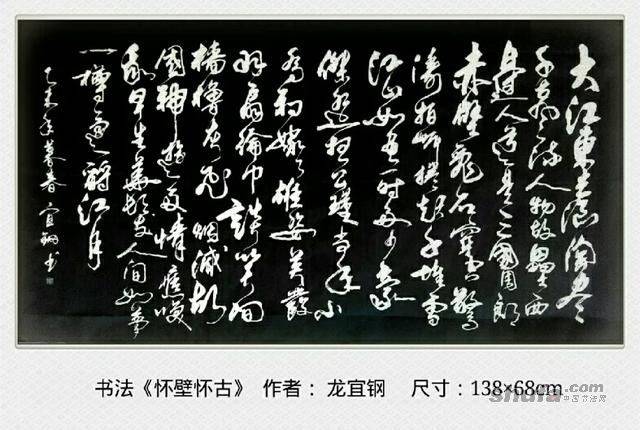 大江東去浪淘尽
千古风流人物故壘西
邊人道是三國周郎
赤壁亂石穿空驚
濤拍岸捲起千堆雪
江山如畫一时多少豪
傑遥想公瑾当年小
喬初嫁了雄姿英發
羽扇綸巾談笑间
樯櫓灰飞烟滅故
國神遊多情應笑
我早生華髮人间如夢
一樽還酹江月
乙未年暮春宜钢书
书法《怀壁怀古》 作者： 龙宜钢 尺寸：138×68cm
shufa.com
中国书法网